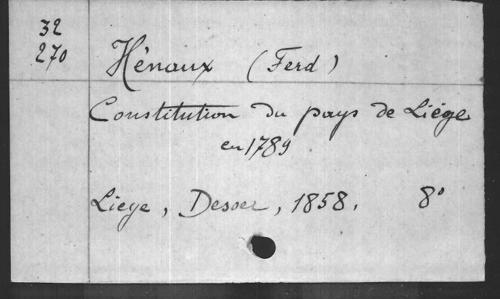 32
270
Hénaux (Ferd)
Constitution du pays de Liége
en 1789
Liege, Desoer, 1858. 8°